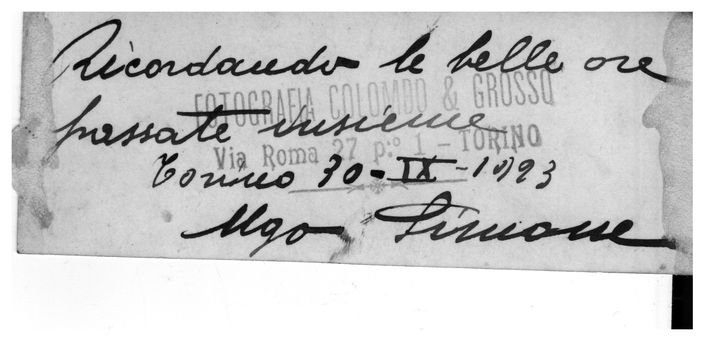 Ricordando le belle ore
FOTOGRAFIA COLOMBO & GROSSO
passate insieme
Via Roma 27 p.º 1 - TORINO
Torino 30-IX-1923
Ugo Simone